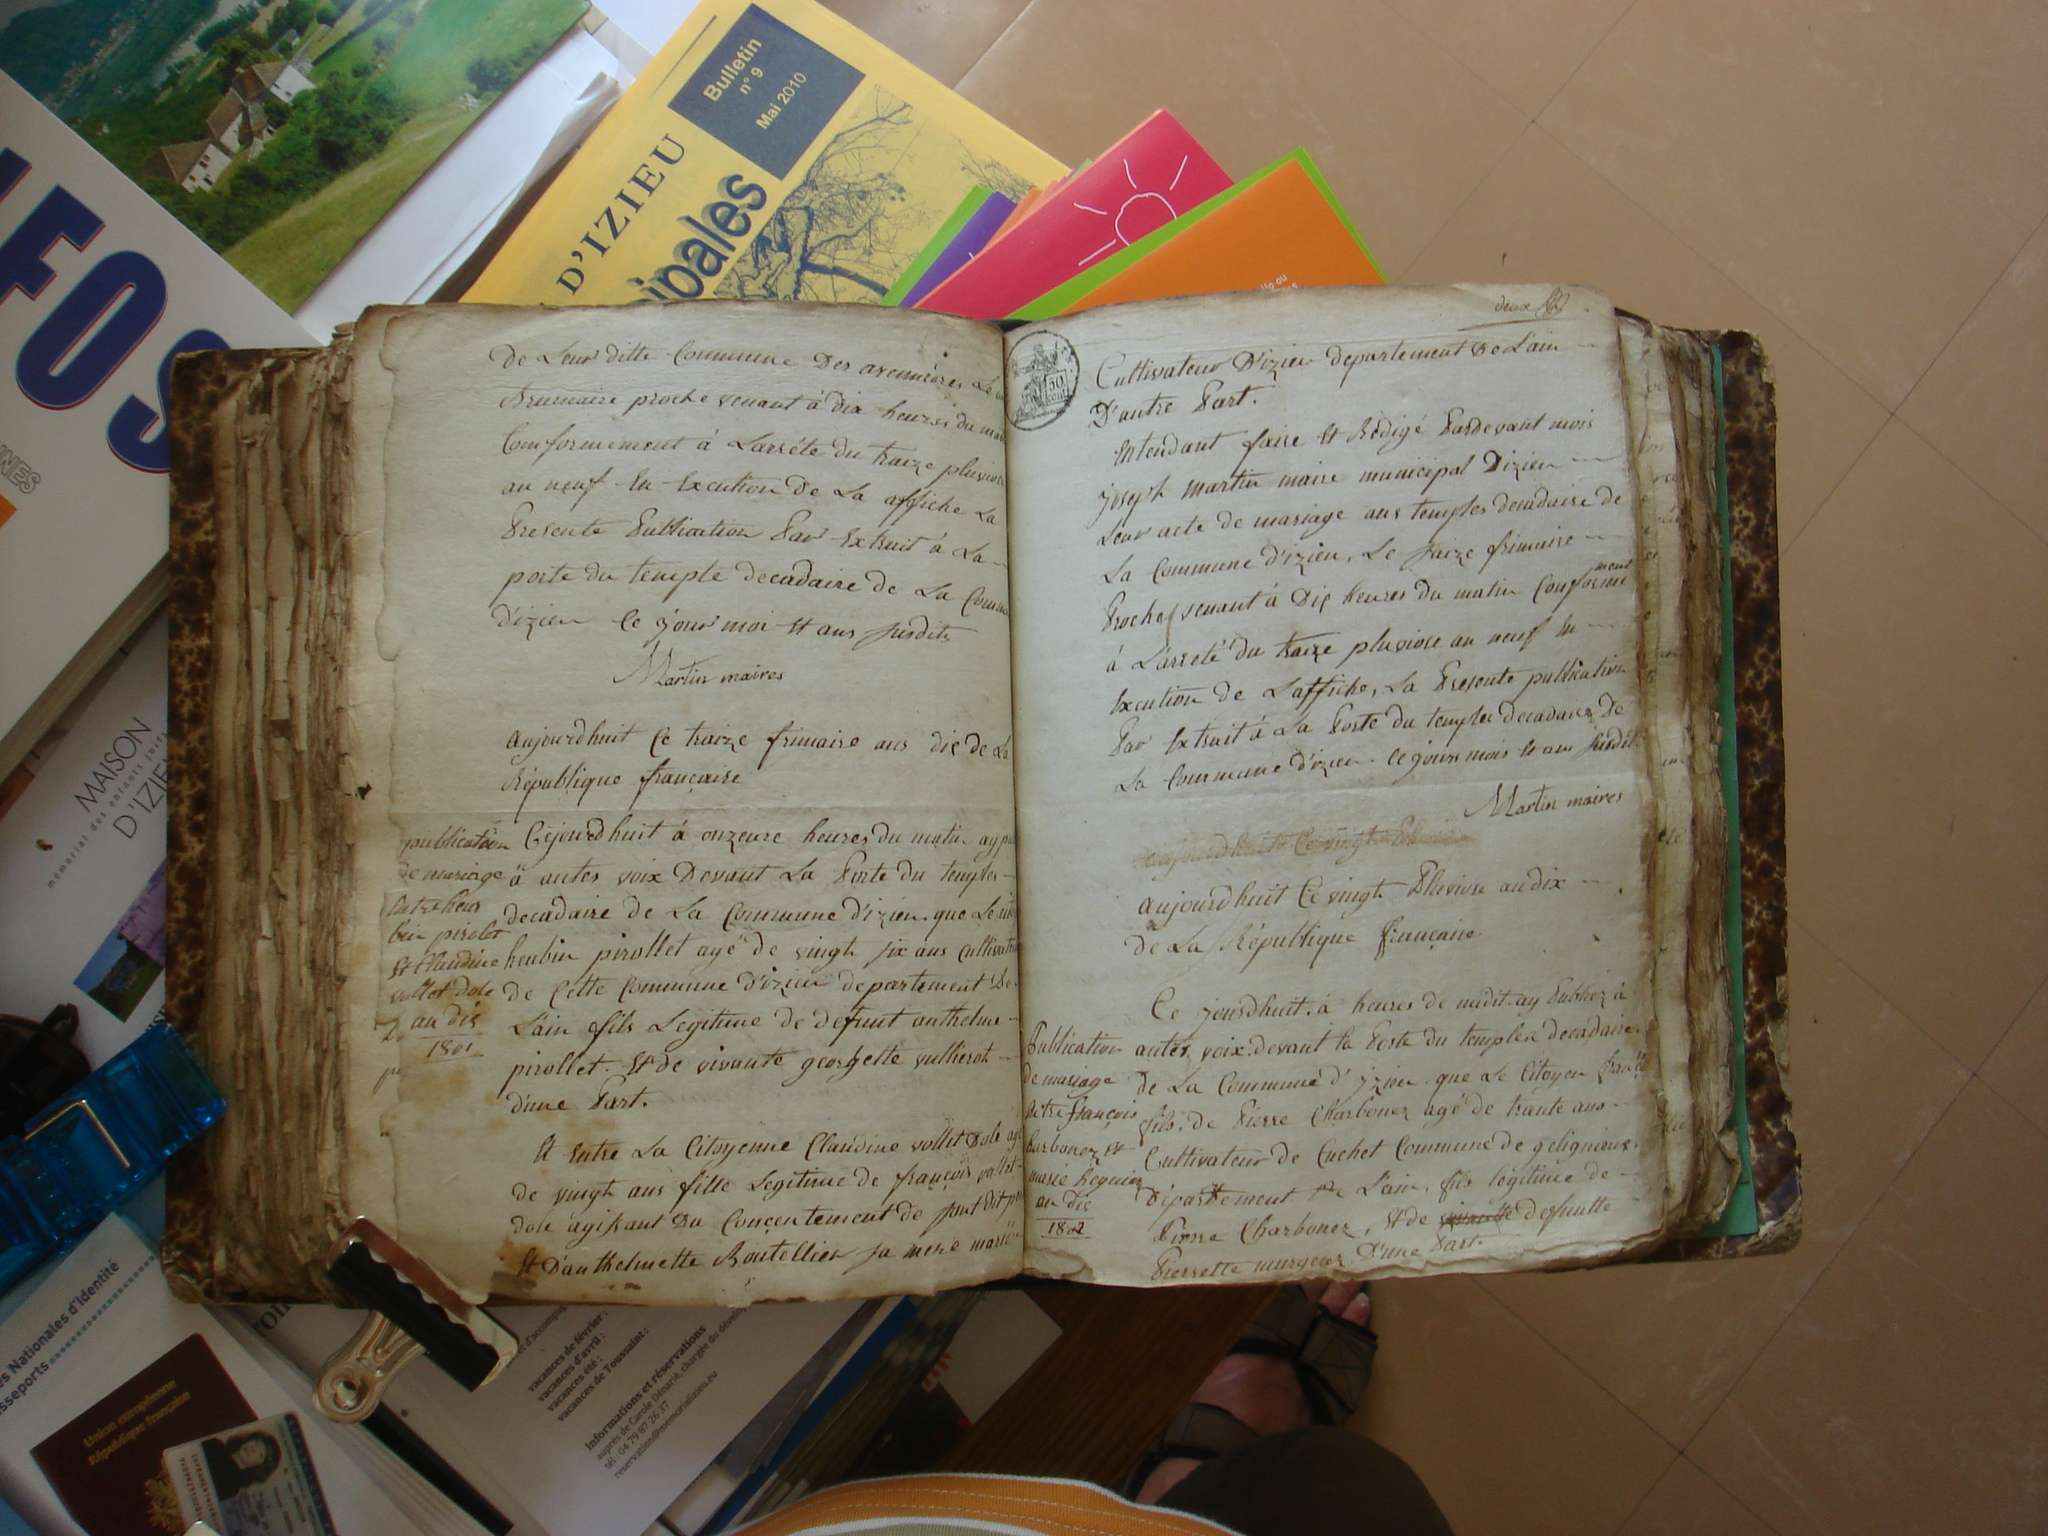 Bulletin
n° 9
Mai 2010
D'IZIEU
ipales
FOS
MAISON
D'IZIEU
de Leur ditte Commune Des avenieres Le
Brumaire proche venant á dix heures du matin
Conformement á Larréte du traize pluviose
an neuf En Excution de La affiche La
Presente Publication Par Extrait á La
porte du temple decadaire de La Commune
D'izieu Ce jour moi Et ans susdits
Martin maires
aujourdhuit Ce traize frimaire ans dis de La
République francaise
publication
de mariage
Entre heur
bin pirolet
Et Claudine
vollet dole
an dis
1801
Cejourdhuit á onzeure heures du matin ay pu
á autes voix Devant La Porte du temples
decadaire de La Commune D'izieu que Le
heubin pirollet agé de vingh six ans Cultivateur
de Cette Commune D'izieu departement De
L'ain fils Legitime de defunt anthelme
pirollet Et de vivante georgette vullierot
d'une Part.
Et Entre La Citoyenne Claudine vollet Dole agé
de vingh ans fille Legitime de françois vollet
dole agissant Du Concentement de
Et D'anthelmette Boutellier sa mere marie
deux
50
Cultivateur D'izieu departement De Lain
D'autre Part.
Entendant faire Et Rédigé Pardevant mois
joseph martin maire municipal Dizieu
Leur acte de mariage aus temples decadaire de
La Commune d'izieu, Le saize frimaire
Proche venant á Dis heures du matin Conforme
ment
á L'arreté du traize pluviose an neuf En
Excution de L'affiche, La Presente publication
Par Extrait á La Porte du temples decadaire De
La Commune d'izieu. Ce jours mois Et an susdit
Martin maires
aujourdhuit Ce vingh
aujourdhuit Ce vingh Pluviose an dix
de La République francaise
Publication
de mariage
Entre françois
Charbonez et
marie
an dis
1802
Ce jourdhuit á heures de midit ay Publiez á
autes voix devant la Porte du temples decadaire
de La Commune d'izieu que Le Citoyen françois
fils de Pierre Charbonez agé de trante ans
Cultivateur de Cuchet Commune de gelignieux
Département De L'ain, fils légitime de
Pierre Charbonez, Et de vivante deffuntte
Pierrette murgeor D'une Part.
es Nationales d'Identité
asseports
Union européenne
République française
vacances de février :
vacances d'avril :
vacances été :
vacances de Toussaint :
Informations et réservations
auprès de Carole Désarié, chargée du dévelo
tél : 04 79 87 26 37
reservation@memorializieu.eu